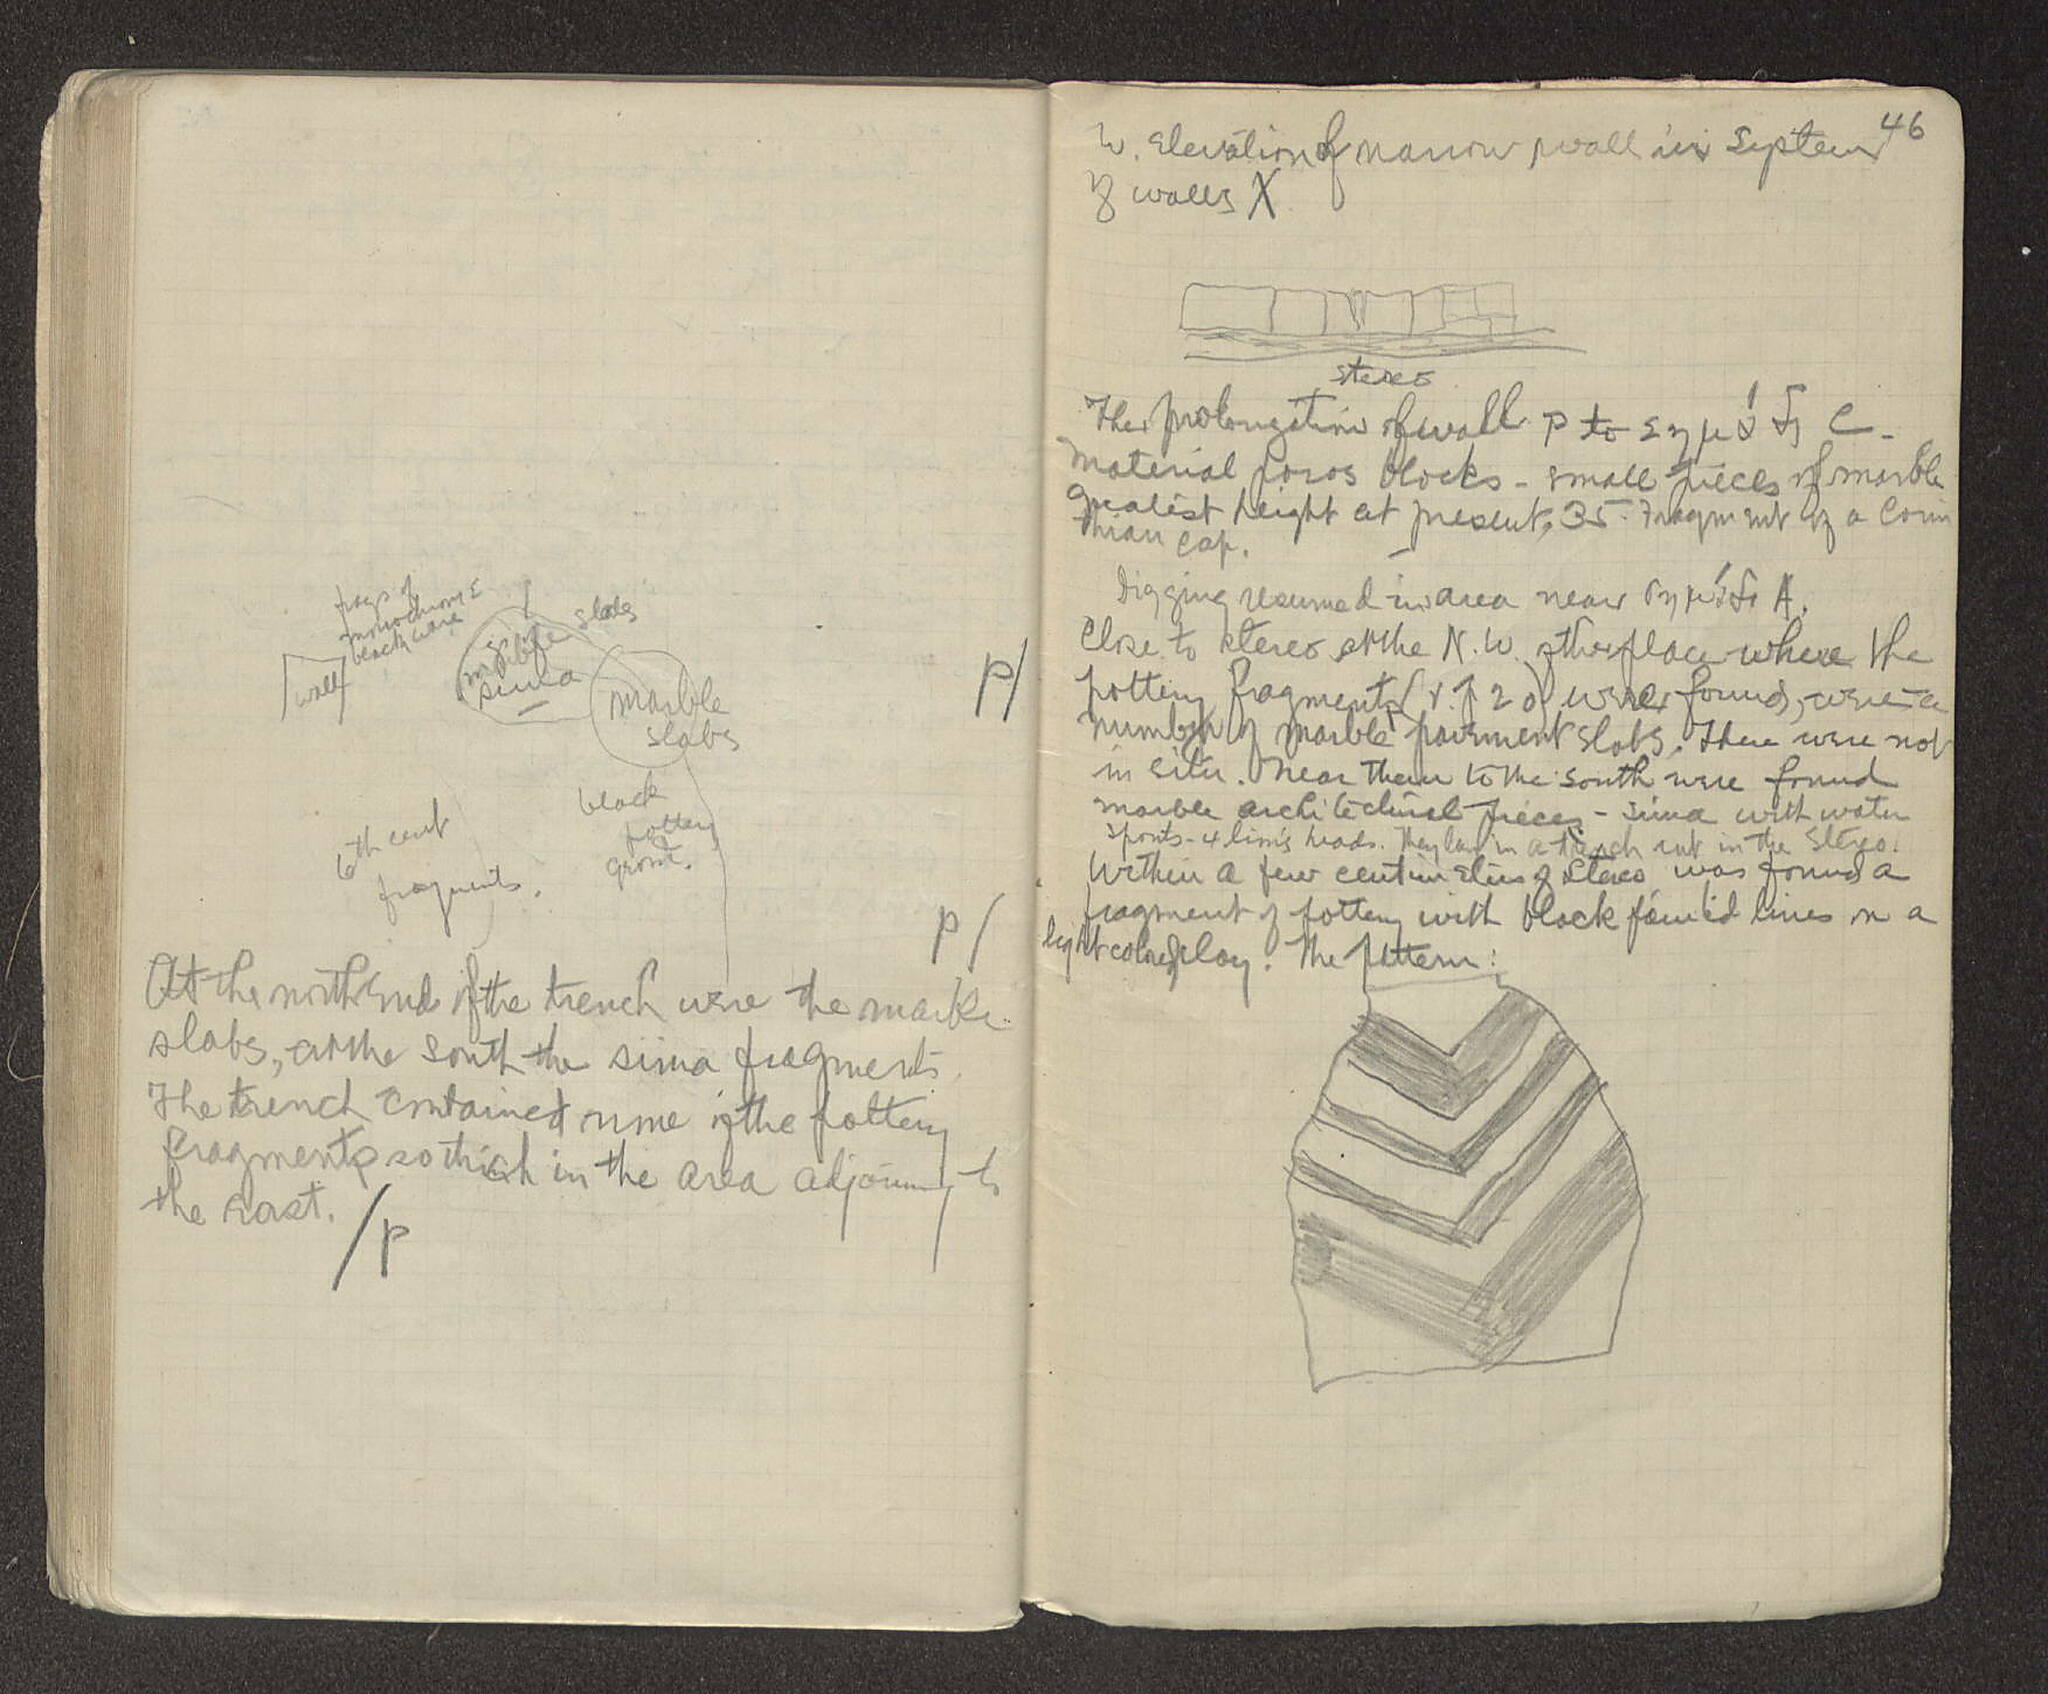 frags of
monochrome &
black ware
wall
marble slabs
marble
sima
marble
slabs
black
pottery
6th cent
fragments.
p/
p/
At the north end of the trench were the marble
slabs, at the south the sima fragments.
The trench contained none of the pottery
fragments so thick in the area adjoining to
the east. /p
46
W. Elevation of narrow wall in System
of walls X
stereo
The prolongation of wall P to C -
material poros blocks - small pieces of marble
greatest height at present, 35 - Fragment of a Corin
thian cap.
Digging resumed in area near A.
Close to stereo at the N.W. of the place where the
pottery fragments (v. p 20) were found, were a
number of marble pavement slabs. These were not
in situ. Near them to the south were found
marble architectural pieces - sima with water
spouts - 4 lion's heads. They lay in a trench cut in the Stereo.
Within a few centimeters of stereo was found a
fragment of pottery with black painted lines on a
light colored clay. The pattern: